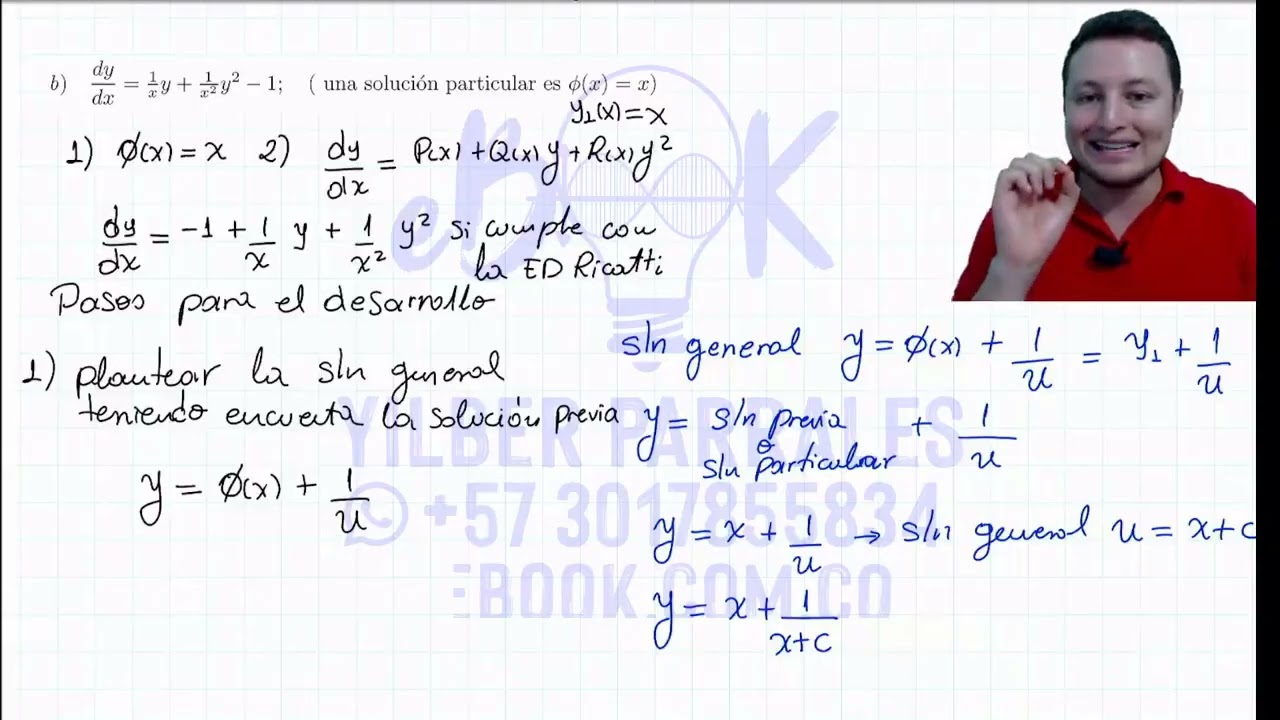 b) dy/dx = 1/x y + 1/x² y² − 1; ( una solución particular es ϕ(x) = x)
y₁(x) = x
1) ϕ(x) = x 2) dy/dx = P(x) + Q(x) y + R(x) y²
dy/dx = -1 + 1/x y + 1/x² y² si cumple con
la ED Ricatti
Pasos para el desarrollo
1) plantear la sln general
teniendo encuenta la solución previa
y = ϕ(x) + 1/u
sln general y = ϕ(x) + 1/u = y₁ + 1/u
y = sln previa o sln particular + 1/u
y = x + 1/u → sln general u = x+c
y = x + 1/x+c
eBOOK
YILBER PARRALES
+57 3017855834
EBOOK.COM.CO